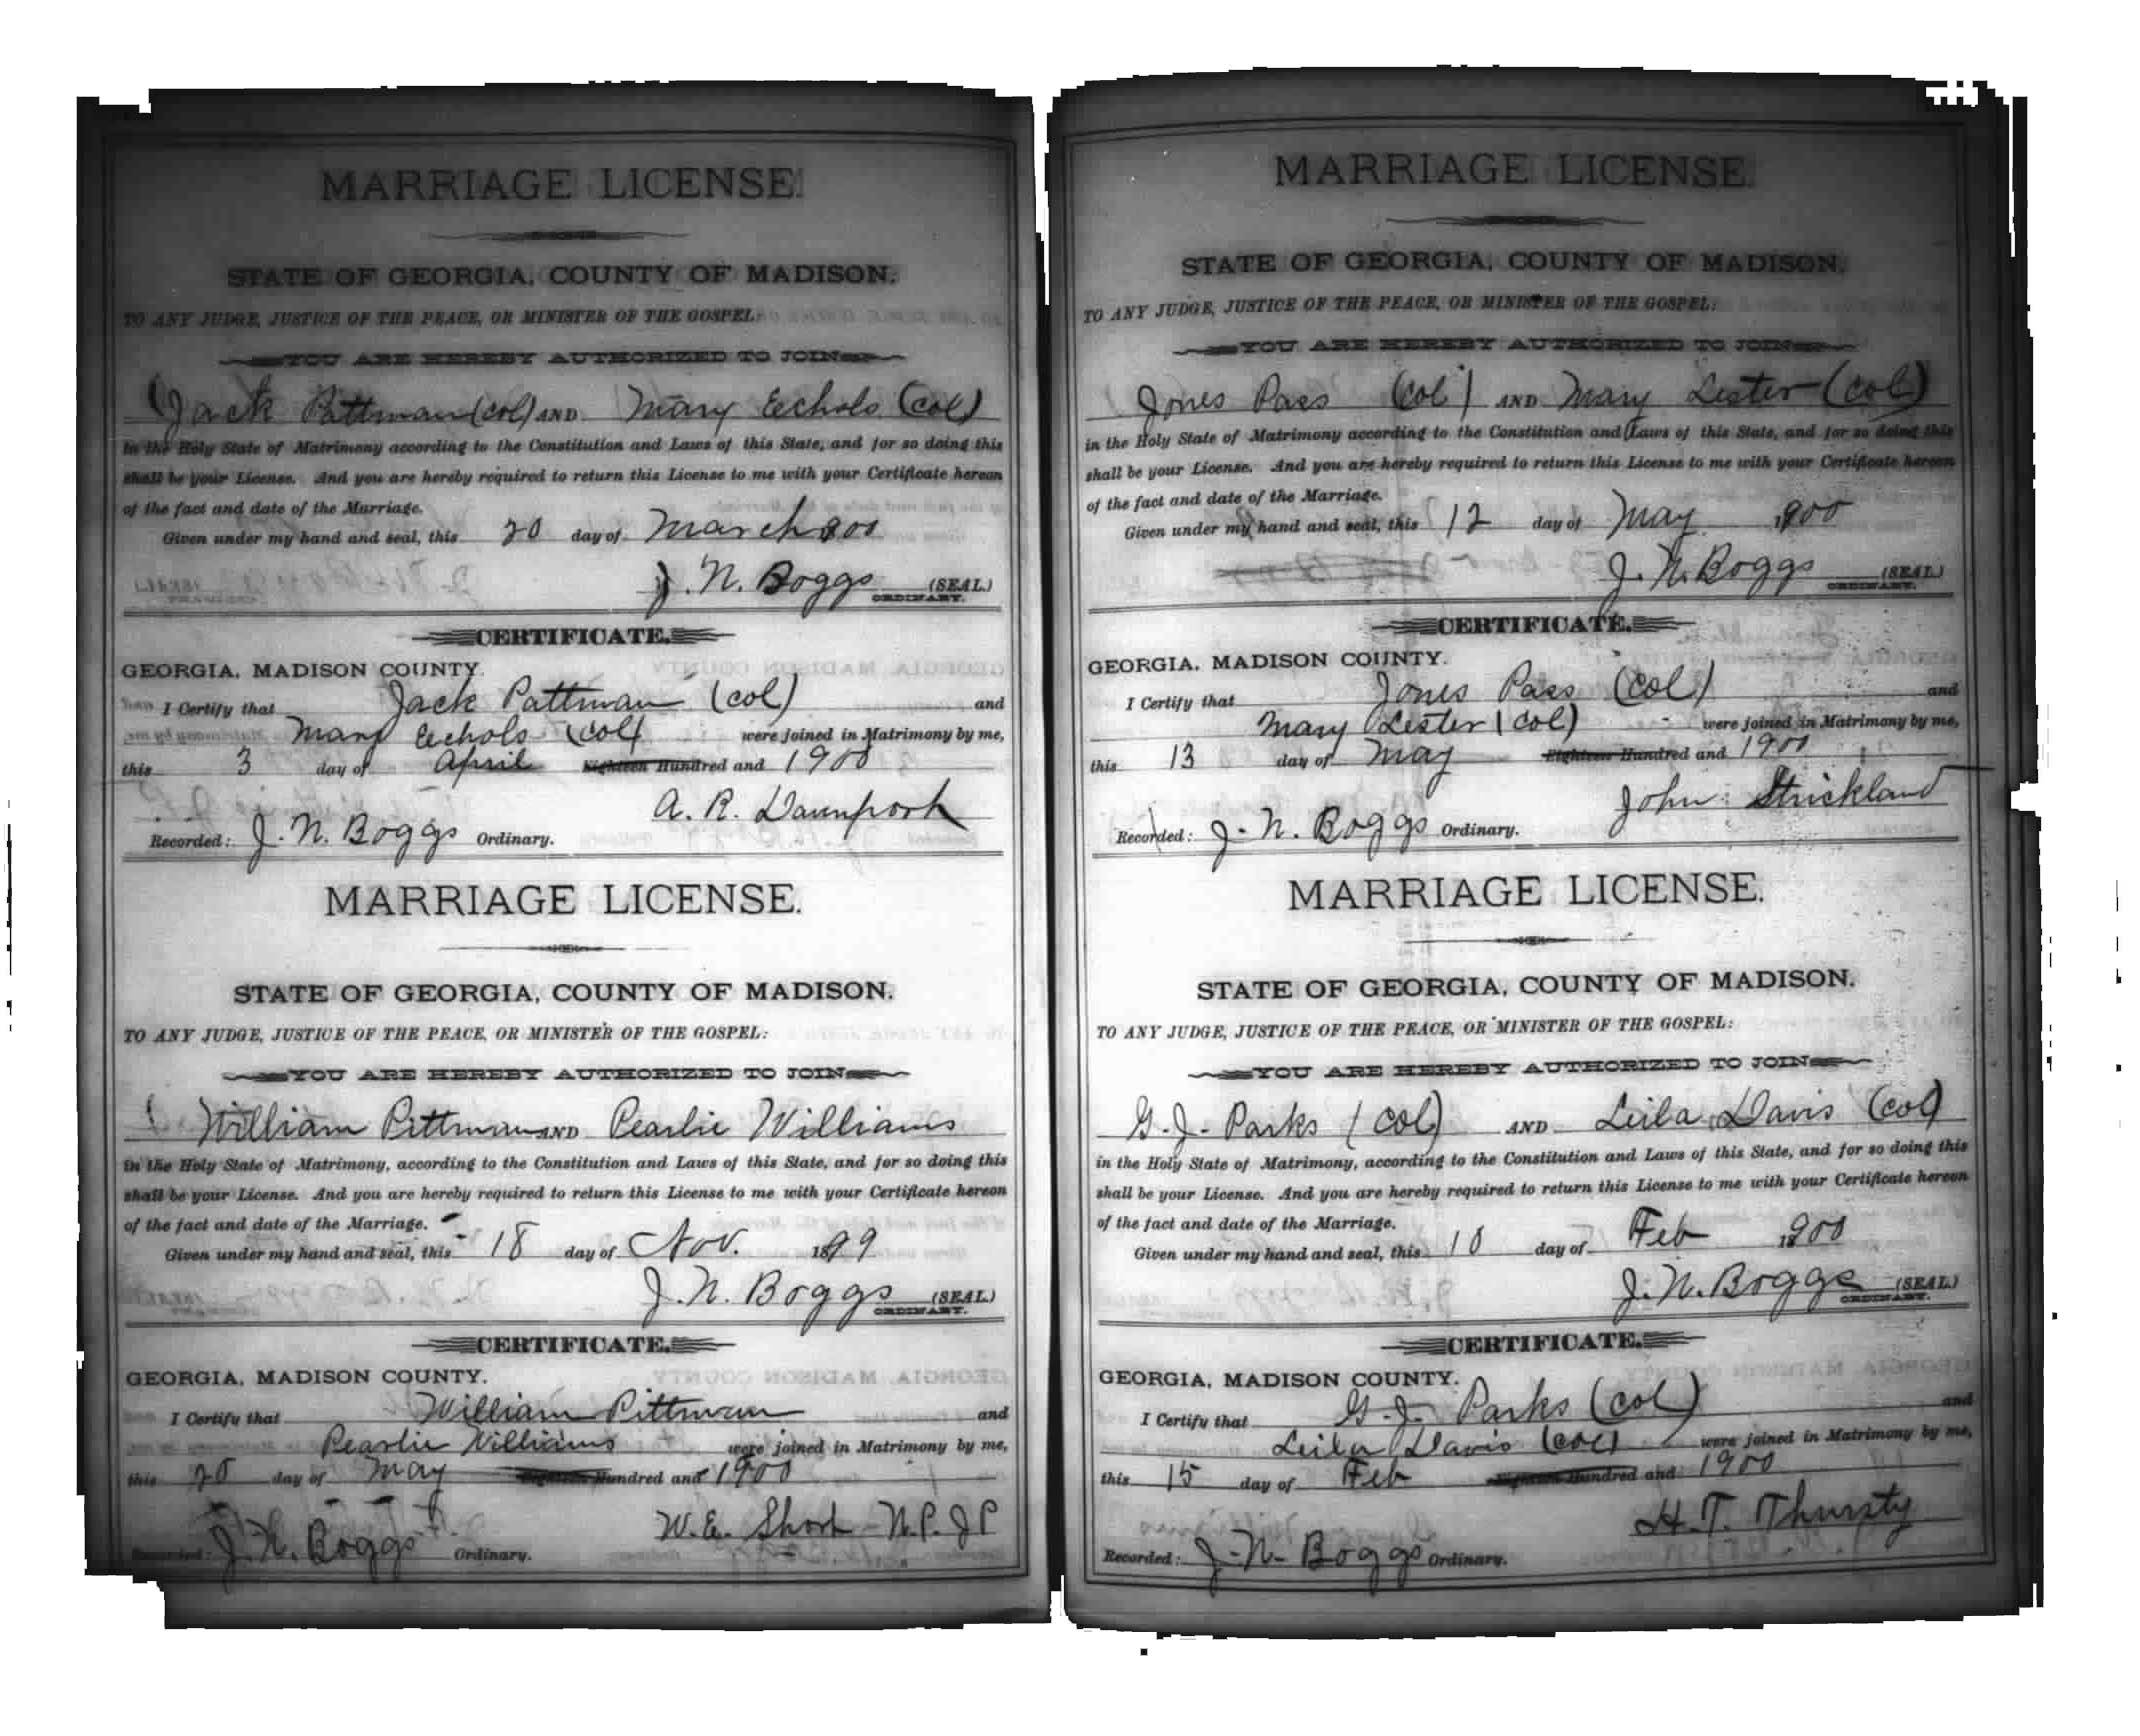 MARRIAGE LICENSE.
STATE OF GEORGIA, COUNTY OF MADISON.
TO ANY JUDGE, JUSTICE OF THE PEACE, OR MINISTER OF THE GOSPEL:
YOU ARE HEREBY AUTHORIZED TO JOIN
Jack Pattman (col) AND Mary Eechols (col)
in the Holy State of Matrimony according to the Constitution and Laws of this State, and for so doing this
shall be your License. And you are hereby required to return this License to me with your Certificate hereon
of the fact and date of the Marriage.
Given under my hand and seal, this 20 day of March 900
J. N. Boggs (SEAL)
ORDINARY.
CERTIFICATE.
GEORGIA, MADISON COUNTY.
I Certify that Jack Pattman (col) and
Mary Eechols (col) were joined in Matrimony by me,
this 3 day of April Eighteen Hundred and 1900
A. R.
Recorded: J. N. Boggs Ordinary.
MARRIAGE LICENSE.
STATE OF GEORGIA, COUNTY OF MADISON.
TO ANY JUDGE, JUSTICE OF THE PEACE, OR MINISTER OF THE GOSPEL:
YOU ARE HEREBY AUTHORIZED TO JOIN
William Pittman AND Pearlie Williams
in the Holy State of Matrimony, according to the Constitution and Laws of this State, and for so doing this
shall be your License. And you are hereby required to return this License to me with your Certificate hereon
of the fact and date of the Marriage.
Given under my hand and seal, this 18 day of Nov. 1899
J. N. Boggs (SEAL)
ORDINARY.
CERTIFICATE.
GEORGIA, MADISON COUNTY.
I Certify that William Pittman and
Pearlie Williams were joined in Matrimony by me,
this 20 day of May Eighteen Hundred and 1900
W. E. Short N.P. J P
Recorded: J. N. Boggs Ordinary.
MARRIAGE LICENSE.
STATE OF GEORGIA, COUNTY OF MADISON.
TO ANY JUDGE, JUSTICE OF THE PEACE, OR MINISTER OF THE GOSPEL:
YOU ARE HEREBY AUTHORIZED TO JOIN
Jones Pass (Col) AND Mary Lester (Col)
in the Holy State of Matrimony according to the Constitution and Laws of this State, and for so doing this
shall be your License. And you are hereby required to return this License to me with your Certificate hereon
of the fact and date of the Marriage.
Given under my hand and seal, this 12 day of May 1900
J. N. Boggs (SEAL)
ORDINARY.
CERTIFICATE.
GEORGIA, MADISON COUNTY.
I Certify that Jones Pass (Col) and
Mary Lester (Col) were joined in Matrimony by me,
this 13 day of May Eighteen Hundred and 1900
John Strickland
Recorded: J. N. Boggs Ordinary.
MARRIAGE LICENSE.
STATE OF GEORGIA, COUNTY OF MADISON.
TO ANY JUDGE, JUSTICE OF THE PEACE, OR MINISTER OF THE GOSPEL:
YOU ARE HEREBY AUTHORIZED TO JOIN
G. J. Parks (Col) AND Leila Davis (Col)
in the Holy State of Matrimony, according to the Constitution and Laws of this State, and for so doing this
shall be your License. And you are hereby required to return this License to me with your Certificate hereon
of the fact and date of the Marriage.
Given under my hand and seal, this 10 day of Feb 1900
J. N. Boggs (SEAL)
ORDINARY.
CERTIFICATE.
GEORGIA, MADISON COUNTY.
I Certify that G. J. Parks (Col) and
Leila Davis (Col) were joined in Matrimony by me,
this 15 day of Feb Eighteen Hundred and 1900
H. T. Thursty
Recorded: J. N. Boggs Ordinary.